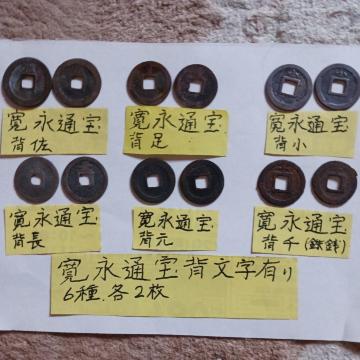 寛永通宝
背佐
寛永通宝
背足
寛永通宝
背小
寛永通宝
背長
寛永通宝
背元
寛永通宝
背千(鉄銭)
寛永通宝背文字有り
6種、各2枚